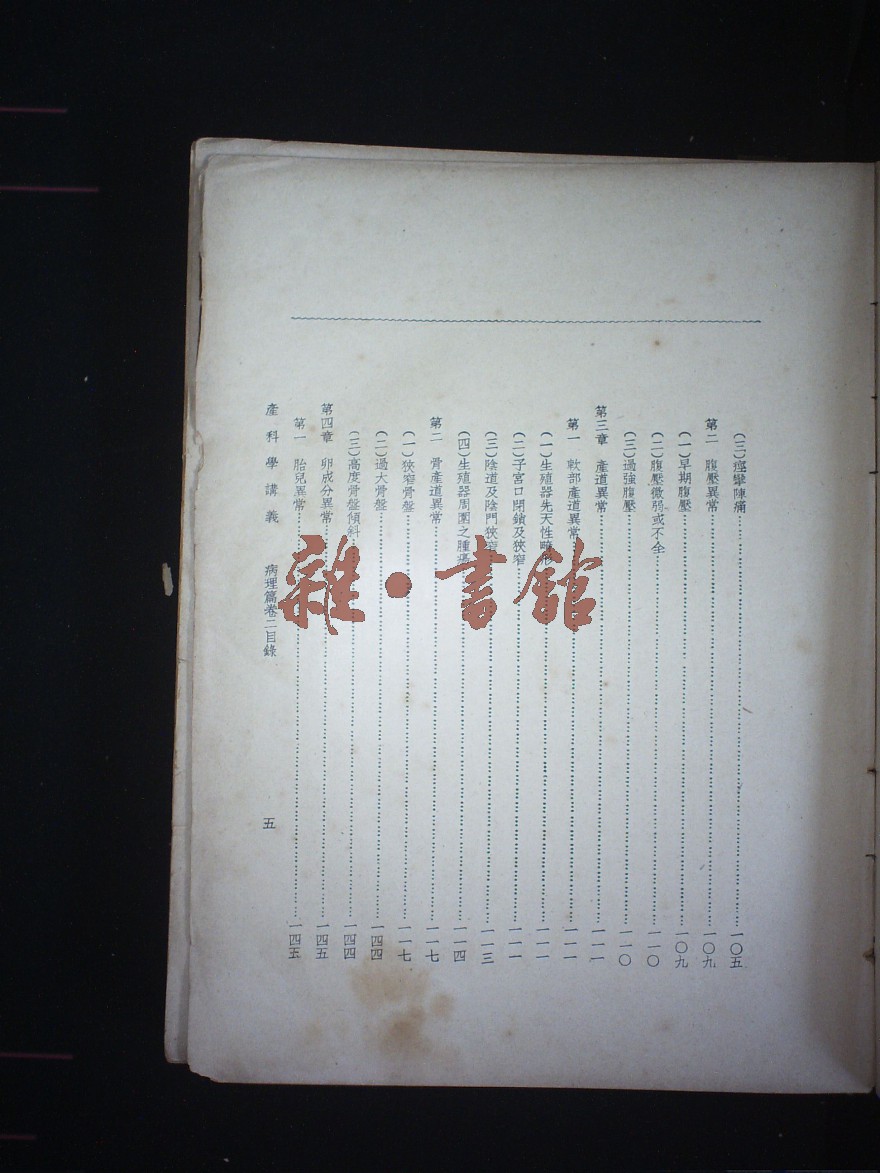 (三)痙攣陣痛……一〇五
第二 腹壓異常……一〇九
(一)早期腹壓……一〇九
(二)腹壓微弱或不全……一一〇
(三)過強腹壓……一一〇
第三章 產道異常……一一一
第一 軟部產道異常……一一一
(一)生殖器先天性畸形……一一一
(二)子宮口閉鎖及狹窄……一一一
(三)陰道及陰門狹窄……一一三
(四)生殖器周圍之腫瘍……一一四
第二 骨產道異常……一一七
(一)狹窄骨盤……一一七
(二)過大骨盤……一四四
(三)高度骨盤傾斜……一四四
第四章 卵成分異常……一四五
第一 胎兒異常……一四五
產科學講義 病理篇卷二目錄 五
雜·書館